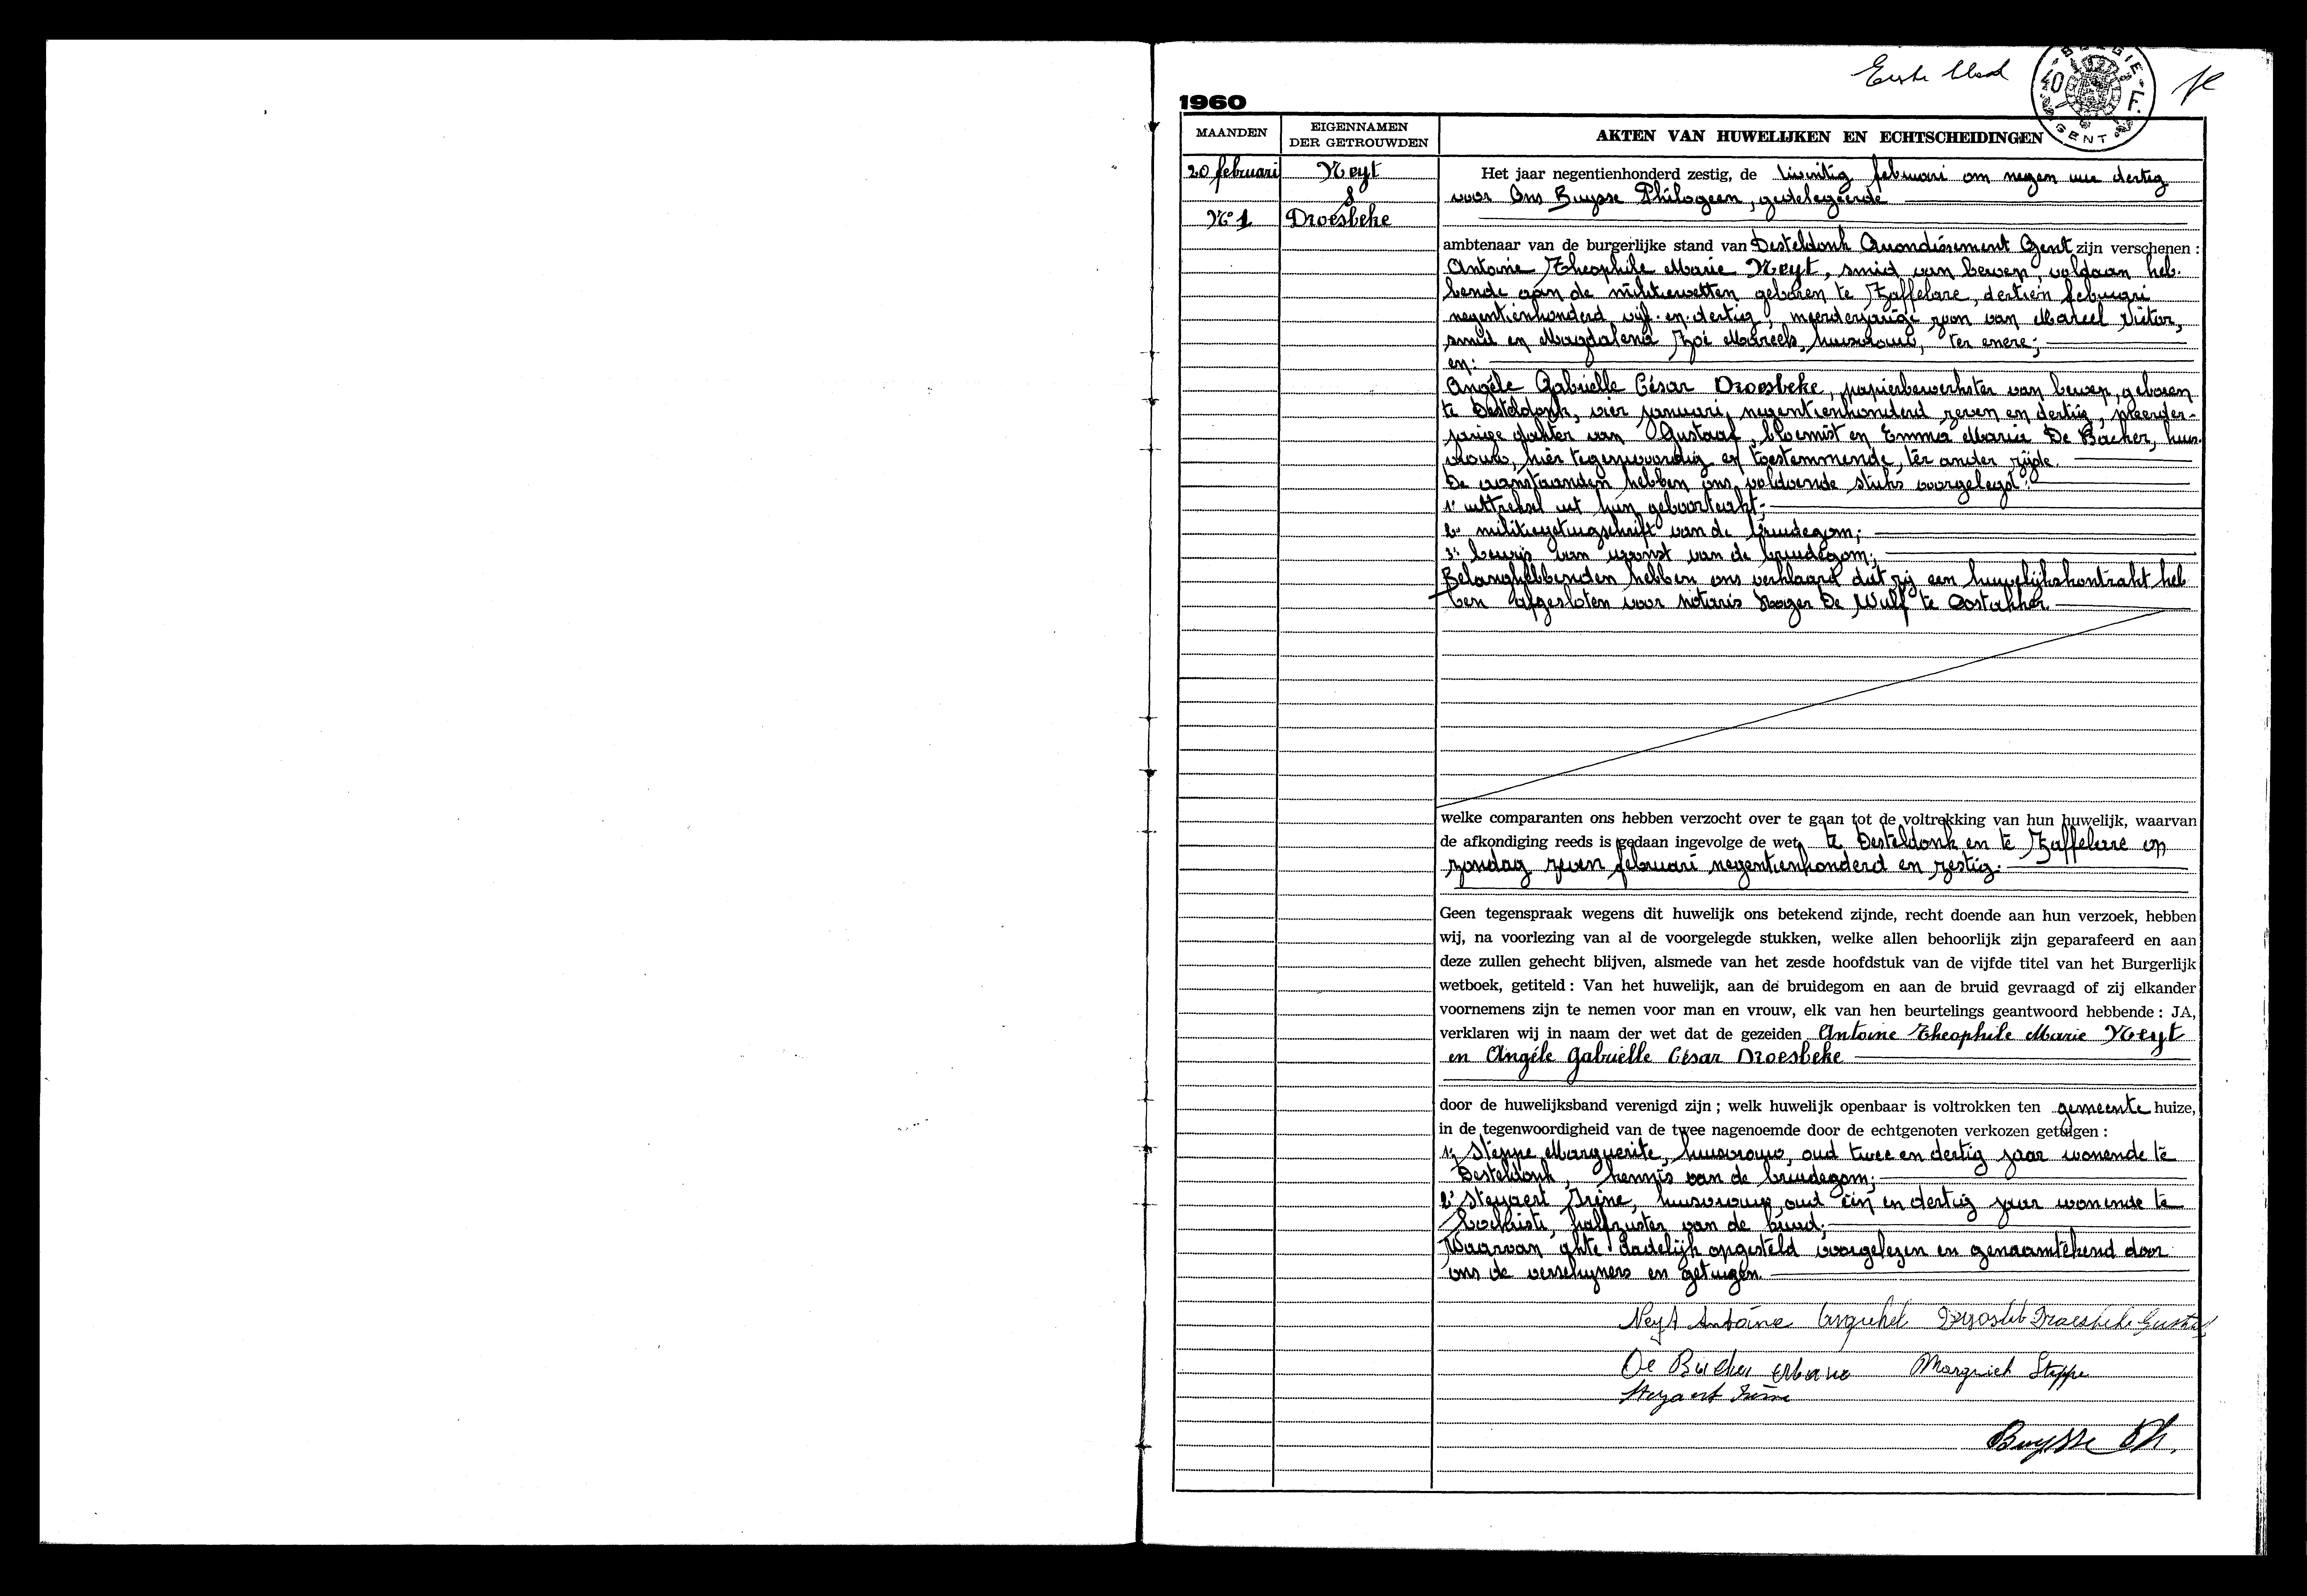 Eerste blad
BELGIE
40 F.
GENT
1960
MAANDEN
EIGENNAMEN
DER GETROUWDEN
AKTEN VAN HUWELIJKEN EN ECHTSCHEIDINGEN
20 februari
N° 1
Neyt
&
Droesbeke
Het jaar negentienhonderd zestig, de twintig februari om negen uur dertig
voor Ons Buysse Philogeen, gedelegeerde
ambtenaar van de burgerlijke stand van Desteldonk Arrondissement Gent zijn verschenen :
Antoine Theophile Marie Neyt, smid van beroep, voldaan heb-
bende aan de militiewetten geboren te Zaffelare, dertien februari
negentienhonderd vijf-en-dertig, meerderjarige zoon van Marcel Victor,
smid en Magdalena Zoé Mareels, huisvrouw, ter enere;
en:
Angèle Gabrielle César Droesbeke, papierbewerkster van beroep, geboren
te Desteldonk, vier januari negentienhonderd zeven en dertig, meerder-
jarige dochter van Gustaaf, bloemist en Emma Maria De Backer, huis-
vrouw, hier tegenwoordig en toestemmende, ter ander zijde.
De aanstaanden hebben ons voldoende stuks voorgelegd:
1° uittreksel uit hun geboorteakt;
2° militiegetuigschrift van de bruidegom;
3° bewijs van woonst van de bruidegom;
Belanghebbenden hebben ons verklaard dat zij een huwelijkskontrakt heb
ben afgesloten voor notaris Roger De Wulf te Oostakker
welke comparanten ons hebben verzocht over te gaan tot de voltrekking van hun huwelijk, waarvan
de afkondiging reeds is gedaan ingevolge de wet, te Desteldonk en te Zaffelare op
zondag zeven februari negentienhonderd en zestig.
Geen tegenspraak wegens dit huwelijk ons betekend zijnde, recht doende aan hun verzoek, hebben
wij, na voorlezing van al de voorgelegde stukken, welke allen behoorlijk zijn geparafeerd en aan
deze zullen gehecht blijven, alsmede van het zesde hoofdstuk van de vijfde titel van het Burgerlijk
wetboek, getiteld : Van het huwelijk, aan de bruidegom en aan de bruid gevraagd of zij elkander
voornemens zijn te nemen voor man en vrouw, elk van hen beurtelings geantwoord hebbende : JA,
verklaren wij in naam der wet dat de gezeiden Antoine Theophile Marie Neyt
en Angèle Gabrielle César Droesbeke
door de huwelijksband verenigd zijn ; welk huwelijk openbaar is voltrokken ten gemeente huize,
in de tegenwoordigheid van de twee nagenoemde door de echtgenoten verkozen getuigen :
1° Steppe Marguerite, huisvrouw, oud twee en dertig jaar wonende te
Desteldonk, kennis van de bruidegom;
2° Steyaert Irène, huisvrouw, oud één en dertig jaar wonende te
Lochristi, halfzuster van de bruid;
Waarvan akte dadelijk opgesteld voorgelezen en genaamtekend door
ons de verschijners en getuigen.
Neyt Antoine Droesbeke Gustaf
De Backer Margriet Steppe
Steyaert Irène
Buysse Ph.